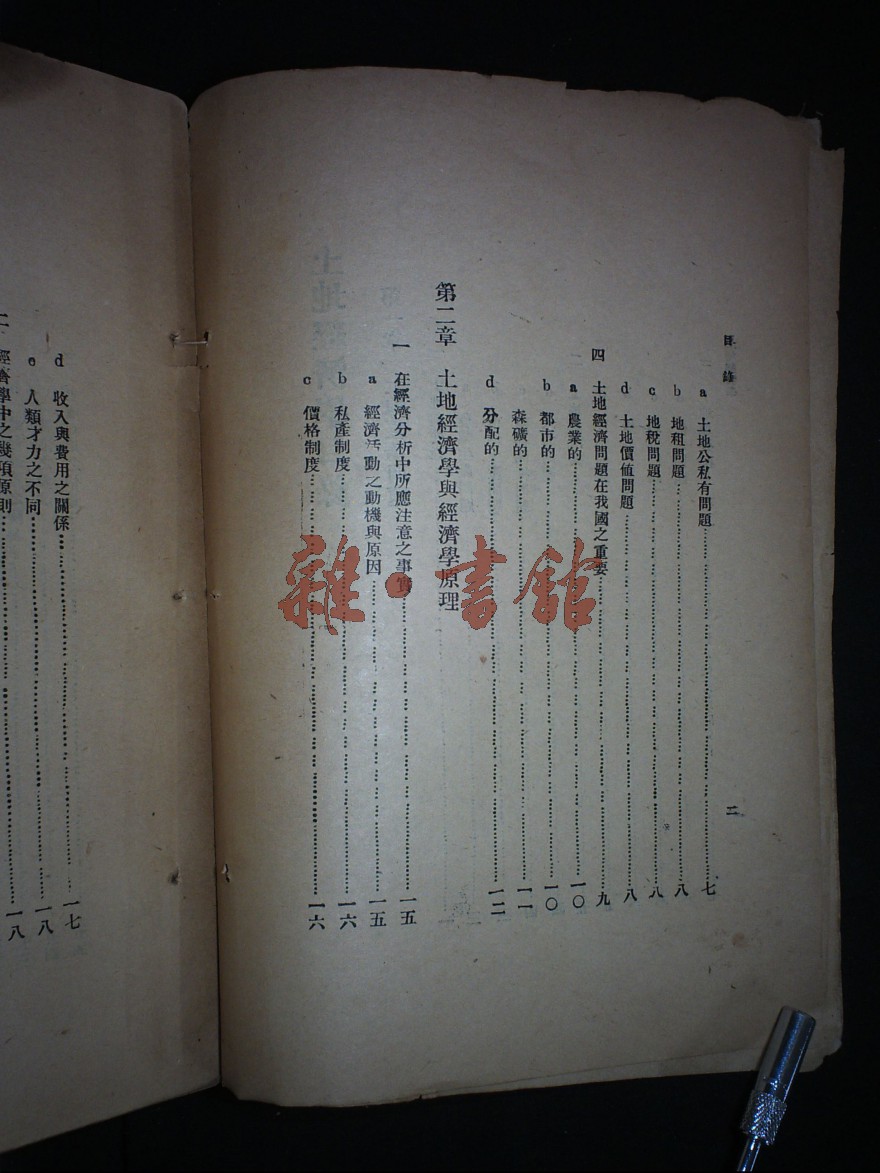 目錄
二
a 土地公私有問題……七
b 地租問題……八
c 地稅問題……八
d 土地價値問題……八
四 土地經濟問題在我國之重要……九
a 農業的……一〇
b 都市的……一〇
森礦的……一一
d 分配的……一二
第二章 土地經濟學與經濟學原理
一 在經濟分析中所應注意之事實……一五
a 經濟活動之動機與原因……一五
b 私產制度……一六
c 價格制度……一六
d 收入與費用之關係……一七
e 人類才力之不同……一八
二 經濟學中之幾項原則……一八
雜·書館